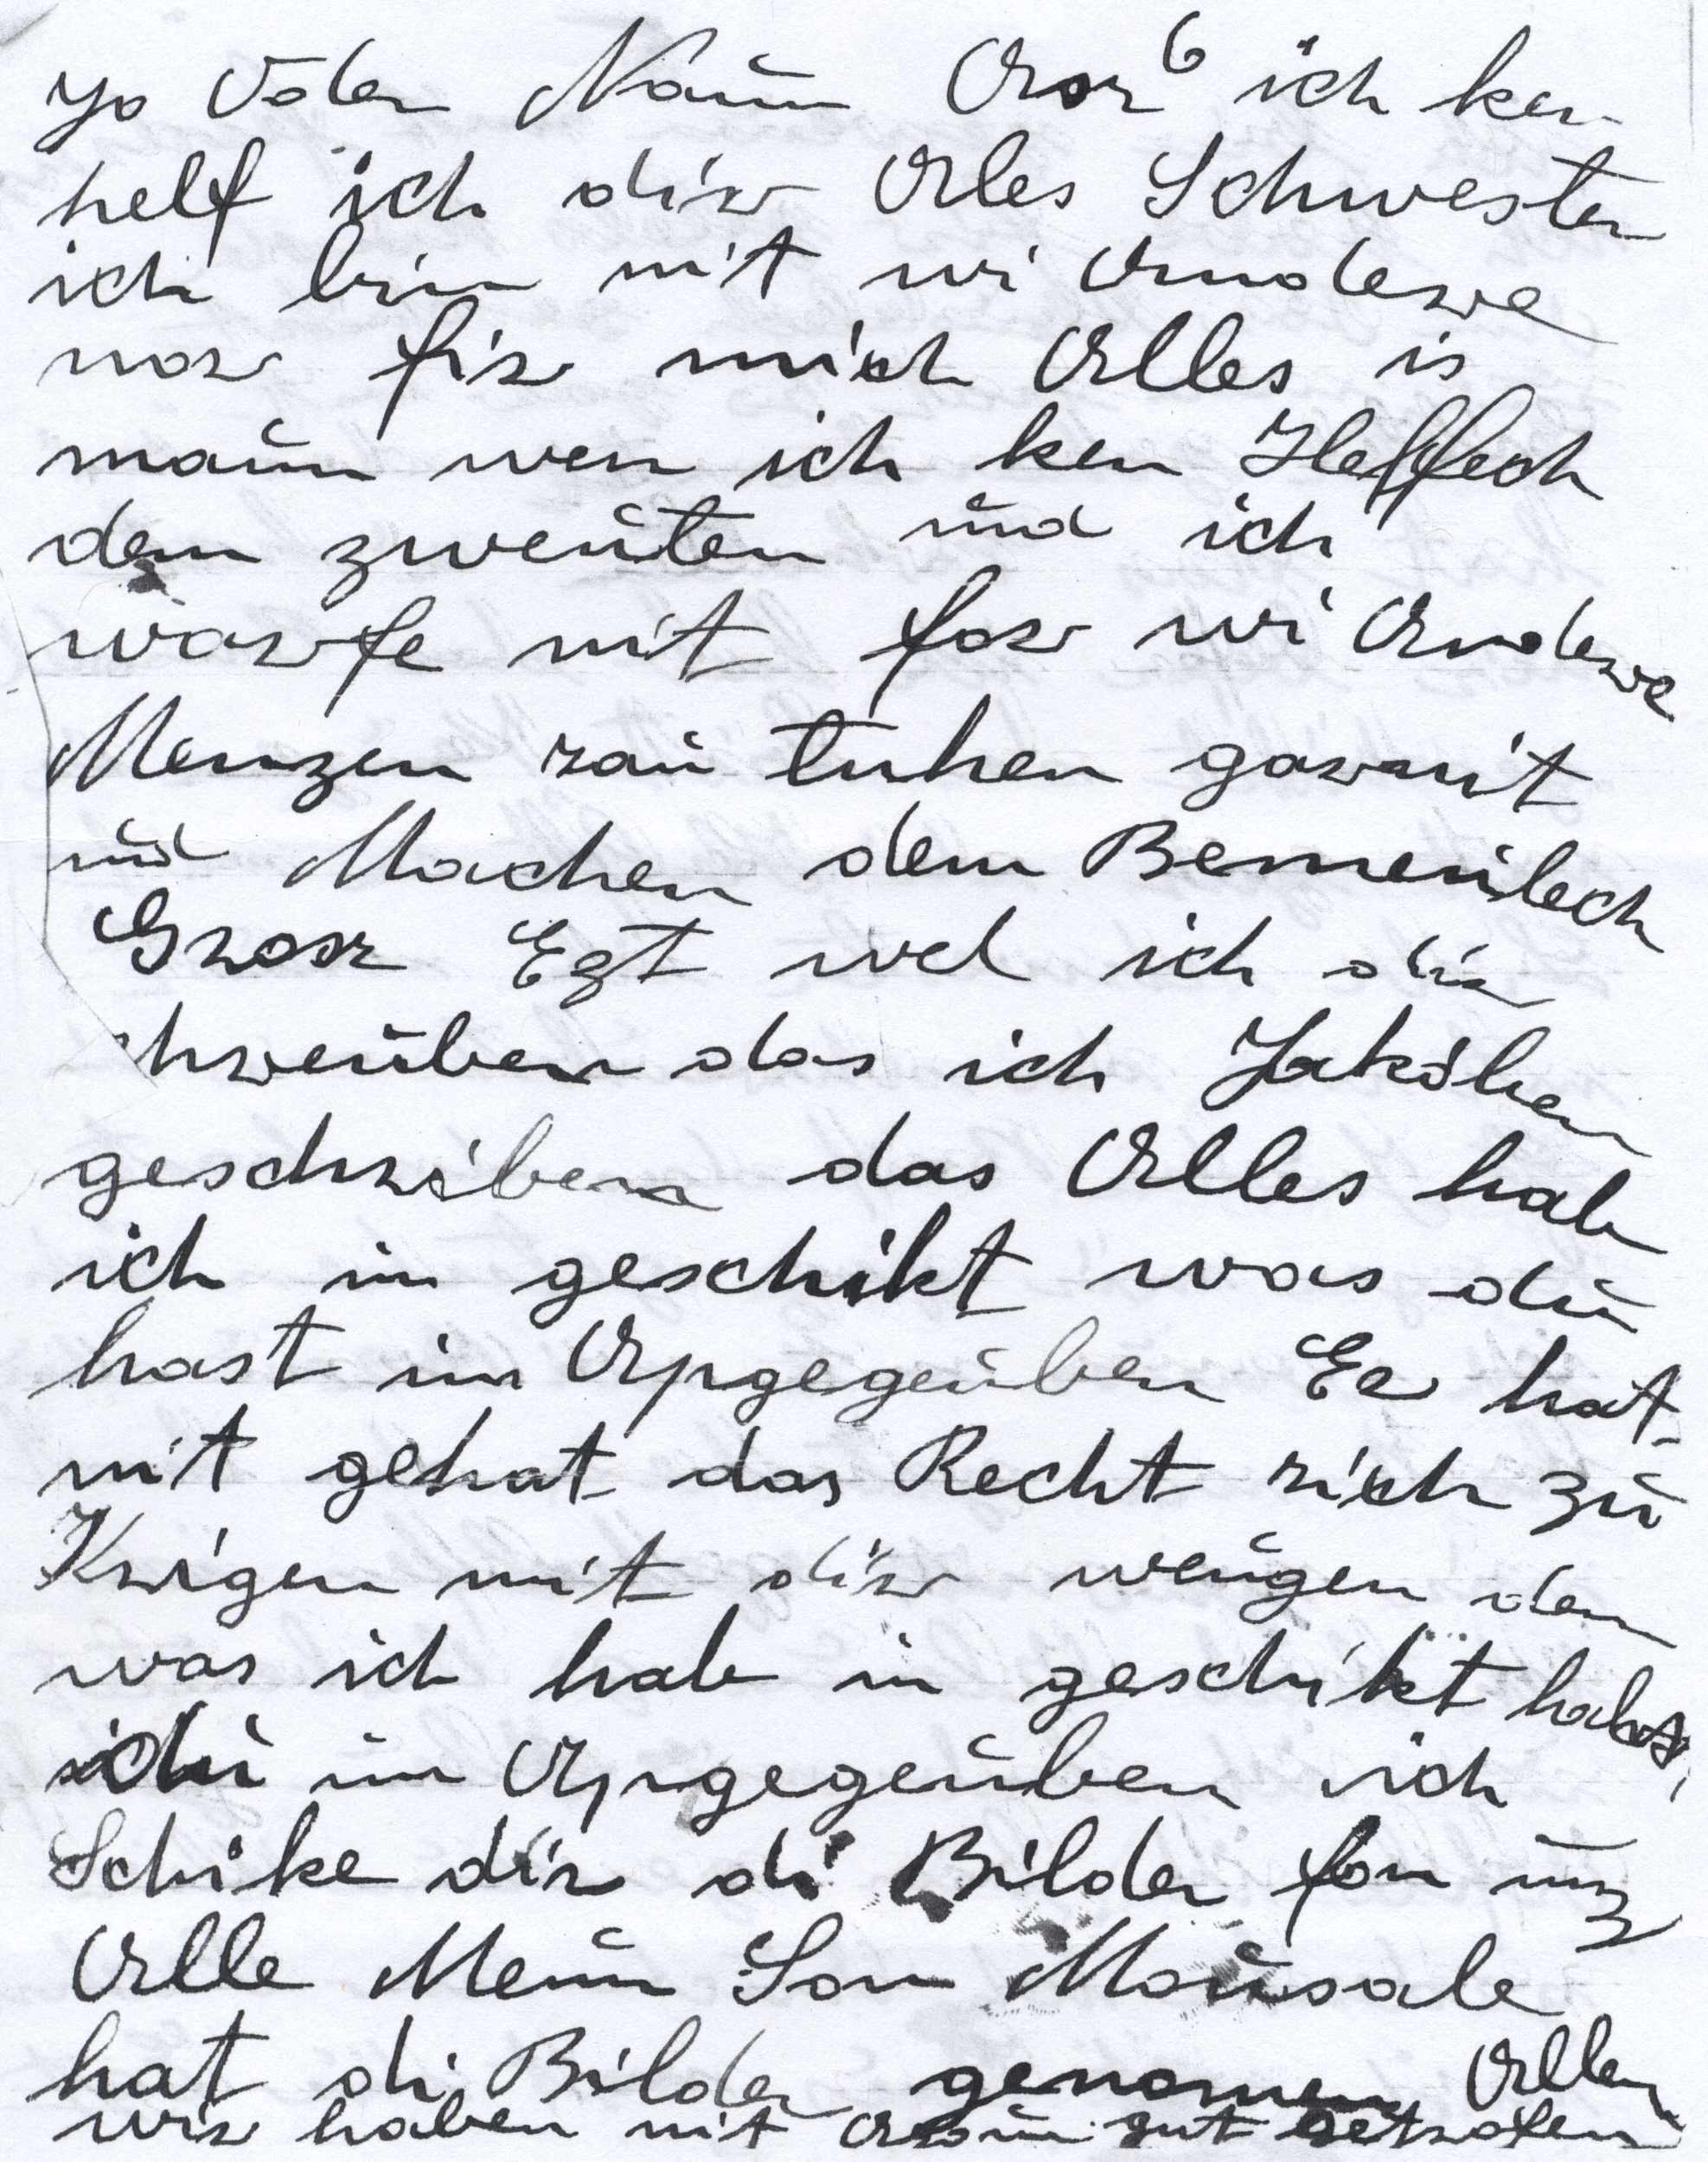 jo oder Naün Oror ich ken
helf ich dir Alles Schwester
ich bin nit wi Andere
nor fir mich Alles is
maün wen ich ken Helfech
dem zweüten ünd ich
warfe nit for wi Andere
Menzen raü tuhen garnit
ünd Machen dem Bemeülech
Grosr Ezt wel ich dir
chreüben das ich Jakoben
geschriben das Alles hab
ich im geschikt was dü
hast im Apgegeüben Er hat
nit gehat das Recht rich zü
Krigen mit dir weügen dem
was ich hab im geschikt habst
dü im Apgegeüben ich
Schike dir di Bilder fon ünz
Alle Meün Son Moüsale
hat di Bilder genomen Allen
wir haben nit gut getrofen